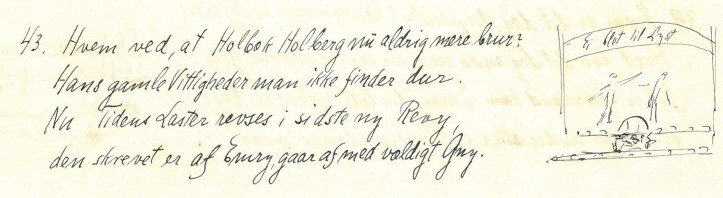 43. Hvem ved, at Holbok Holberg nu aldrig mere brur?
Hans gamle Vittigheder man ikke finder dur.
Nu Tidens Laster revses i sidste ny Revy,
den skrevet er af Emry, gaar af med vældigt Gny.
Ei blot til Lyst